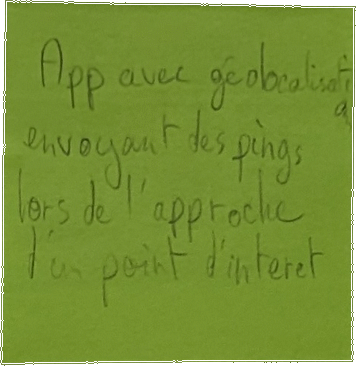 App avec géolocalisation
envoyant des pings
lors de l'approche
d'un point d'interet